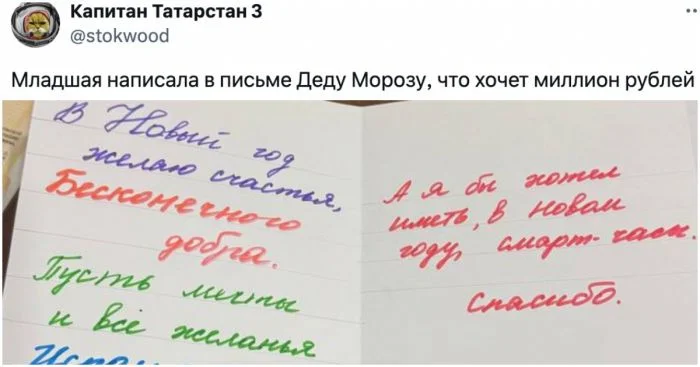 Капитан Татарстан 3
@stokwood
Младшая написала в письме Деду Морозу, что хочет миллион рублей
В Новый год
желаю счастья,
Бесконечного
добра.
Пусть мечты
и все желанья
А я бы хотел
иметь, в новом
году, смарт-часы.
Спасибо.